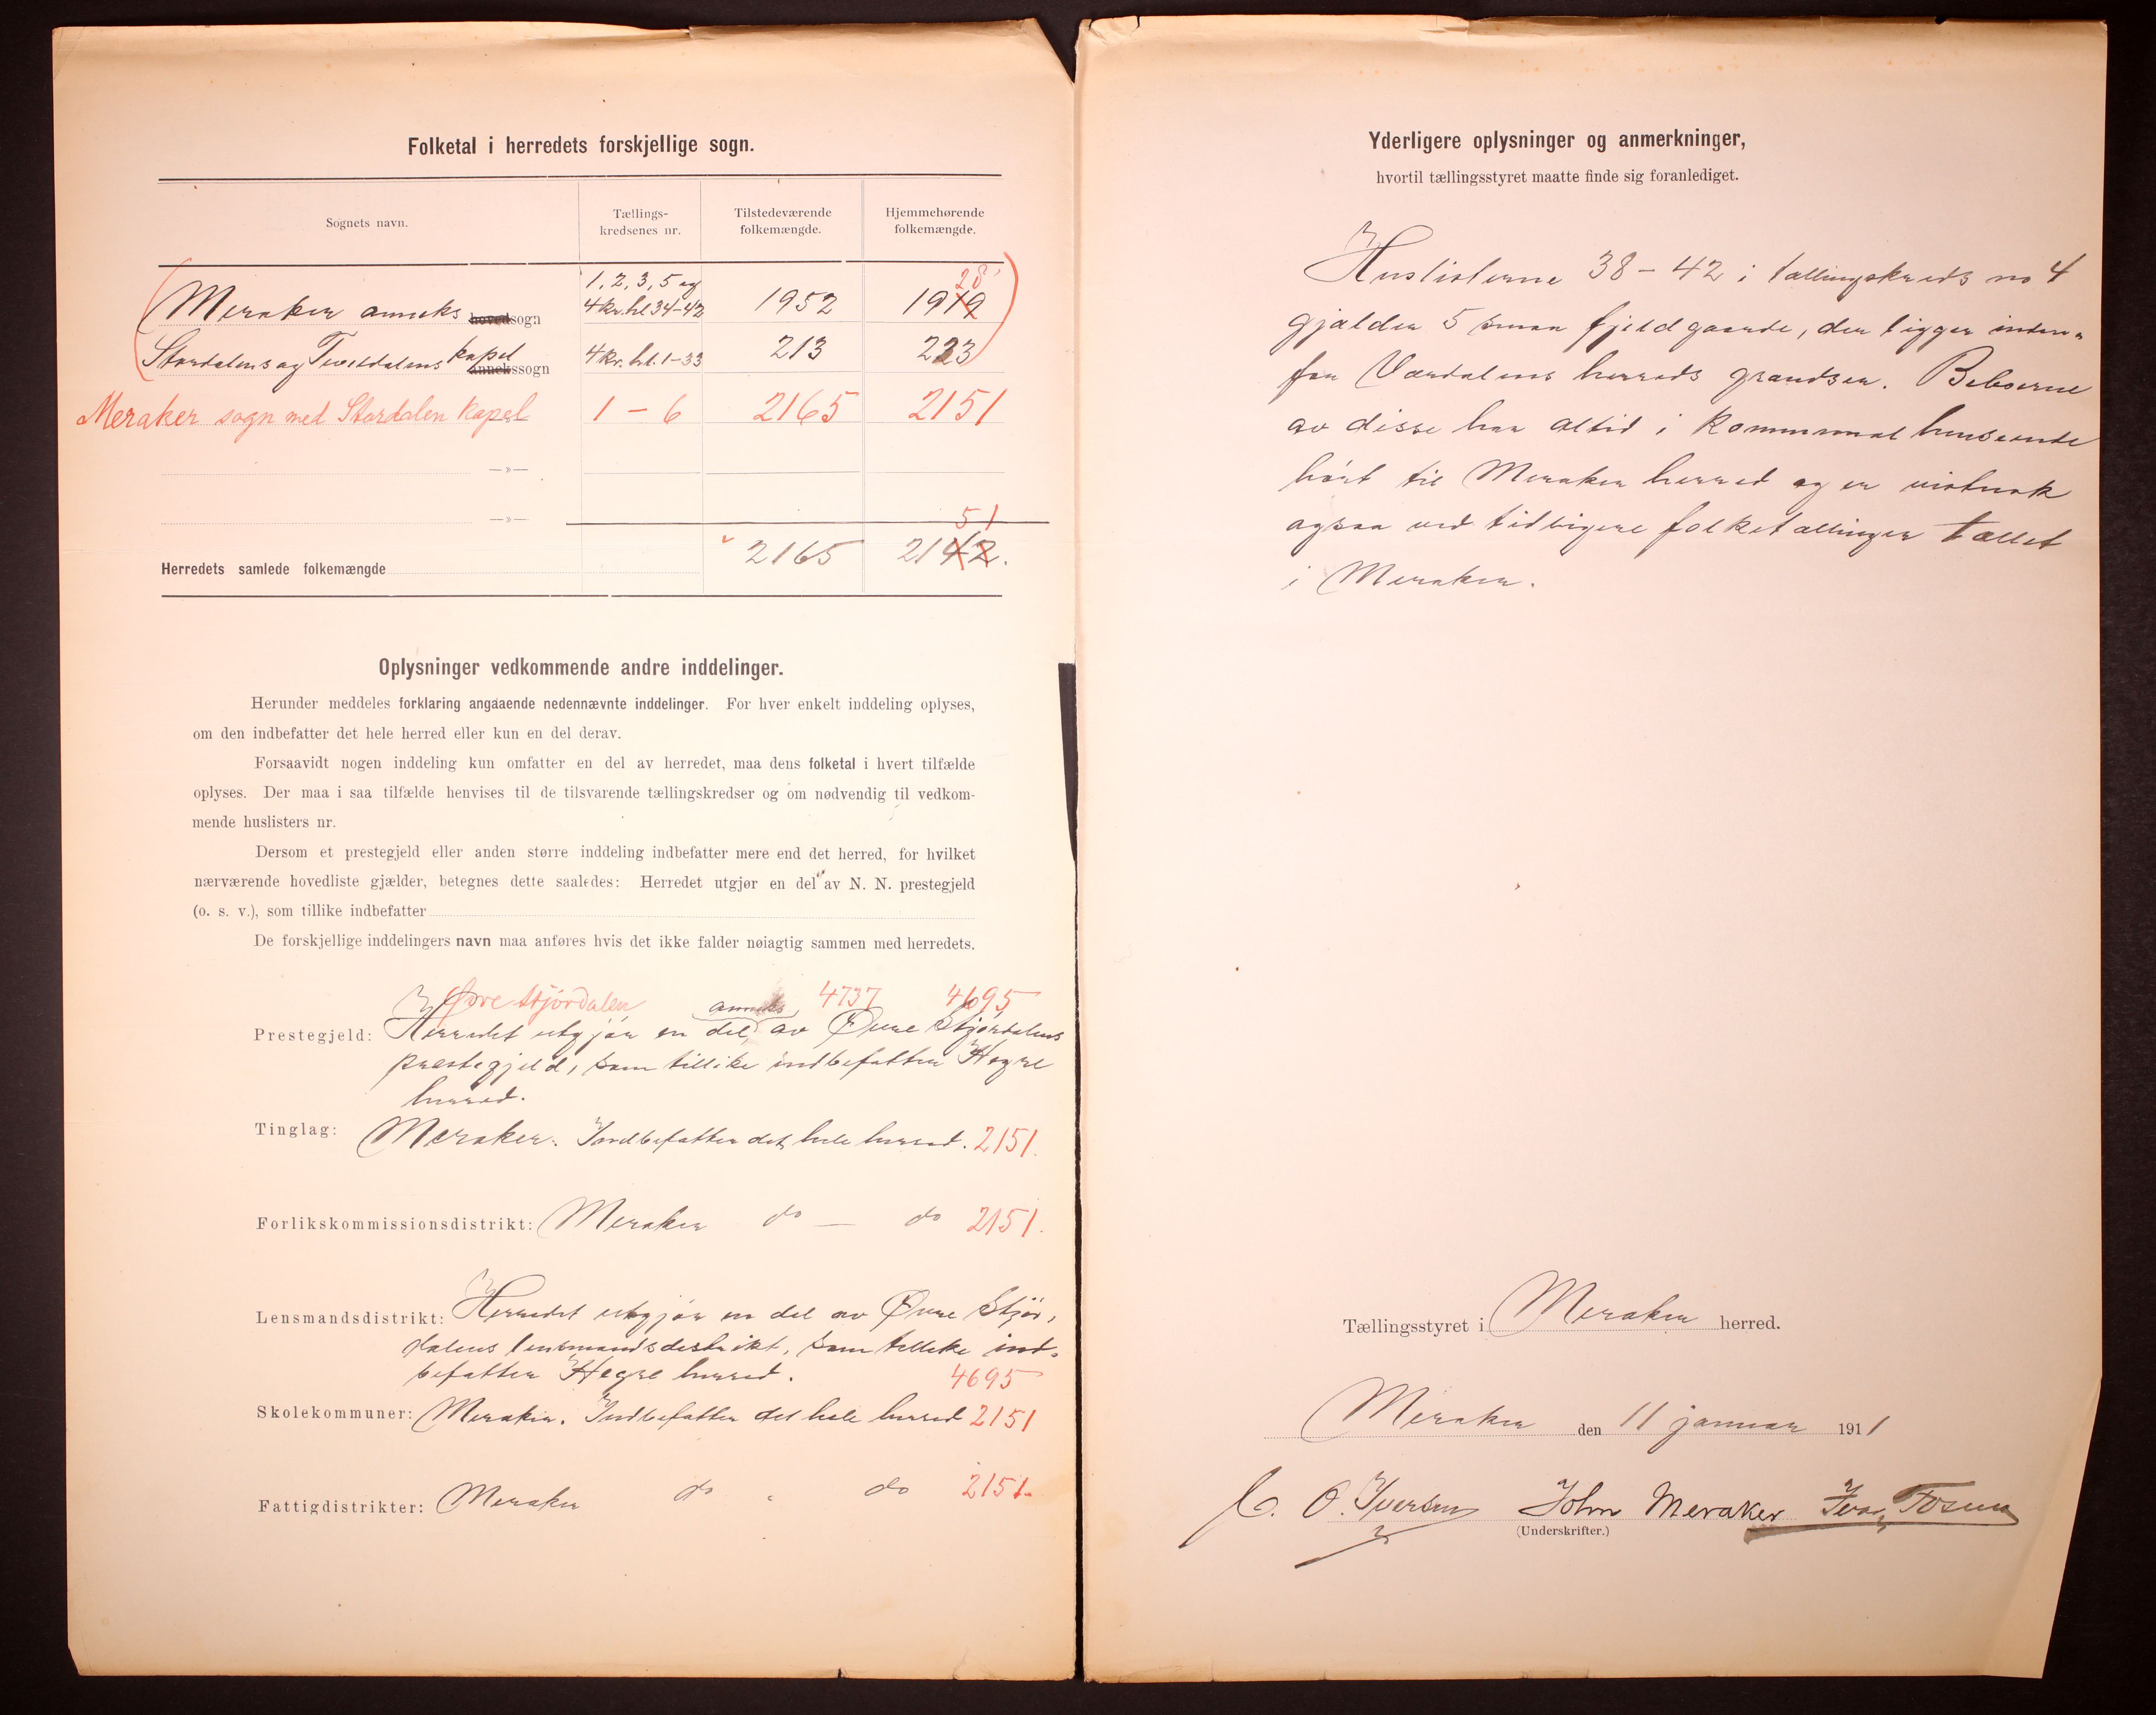 Folketal i herredets forskjellige sogn.
Sognets navn.
Tællings-
kredsenes nr.
Tilstedeværende
folkemængde.
Hjemmehørende
folkemængde.
28
1, 2, 3, 5 og
Meraker anneks hovedsogn 4 kr. hl. 34-42 1952 1919
Stordalens og Teveldalens kapel annekssogn 4 kr. hl. 1-33 213 223
Meraker sogn med Stordalen Kapel 1 - 6 2165 2151
—»—
—»—
51
Herredets samlede folkemængde 2165 2142.
Oplysninger vedkommende andre inddelinger.
Herunder meddeles forklaring angaaende nedennævnte inddelinger. For hver enkelt inddeling oplyses,
om den indbefatter det hele herred eller kun en del derav.
Forsaavidt nogen inddeling kun omfatter en del av herredet, maa dens folketal i hvert tilfælde
oplyses. Der maa i saa tilfælde henvises til de tilsvarende tællingskredser og om nødvendig til vedkom-
mende huslisters nr.
Dersom et prestegjeld eller anden større inddeling indbefatter mere end det herred, for hvilket
nærværende hovedliste gjælder, betegnes dette saaledes: Herredet utgjør en del av N. N. prestegjeld
(o. s. v.), som tillike indbefatter
De forskjellige inddelingers navn maa anføres hvis det ikke falder nøiagtig sammen med herredets.
Øvre Stjørdalen anneks 4737 4695
Prestegjeld: Herredet utgjør en del av Øvre Stjørdalens
prestegjeld, som tillike indbefatter Hegre
herred.
Tinglag: Meraker. Indbefatter det hele herred. 2151.
Forlikskommissionsdistrikt: Meraker do — do 2151.
Lensmandsdistrikt: Herredet utgjør en del av Øvre Stjør-
dalens lensmandsdistrikt, som tillike ind-
befatter Hegre herred. 4695
Skolekommuner: Meraker. Indbefatter det hele herred 2151
Fattigdistrikter: Meraker do - do 2151.
Yderligere oplysninger og anmerkninger,
hvortil tællingsstyret maatte finde sig foranlediget.
Huslisterne 38 - 42 i tællingskreds no 4
gjælder 5 smaa fjeldgaarde, der ligger inden-
for Værdalens herreds grændser. Beboerne
av disse har altid i kommunal henseende
hørt til Meraker herred og er vistnok
ogsaa ved tidligere folketællinger tællet
i Meraker.
Tællingsstyret i Meraker herred.
Meraker den 11 januar 1911
C. O. Iversen John Meraker Ivar Fosum
(Underskrifter.)